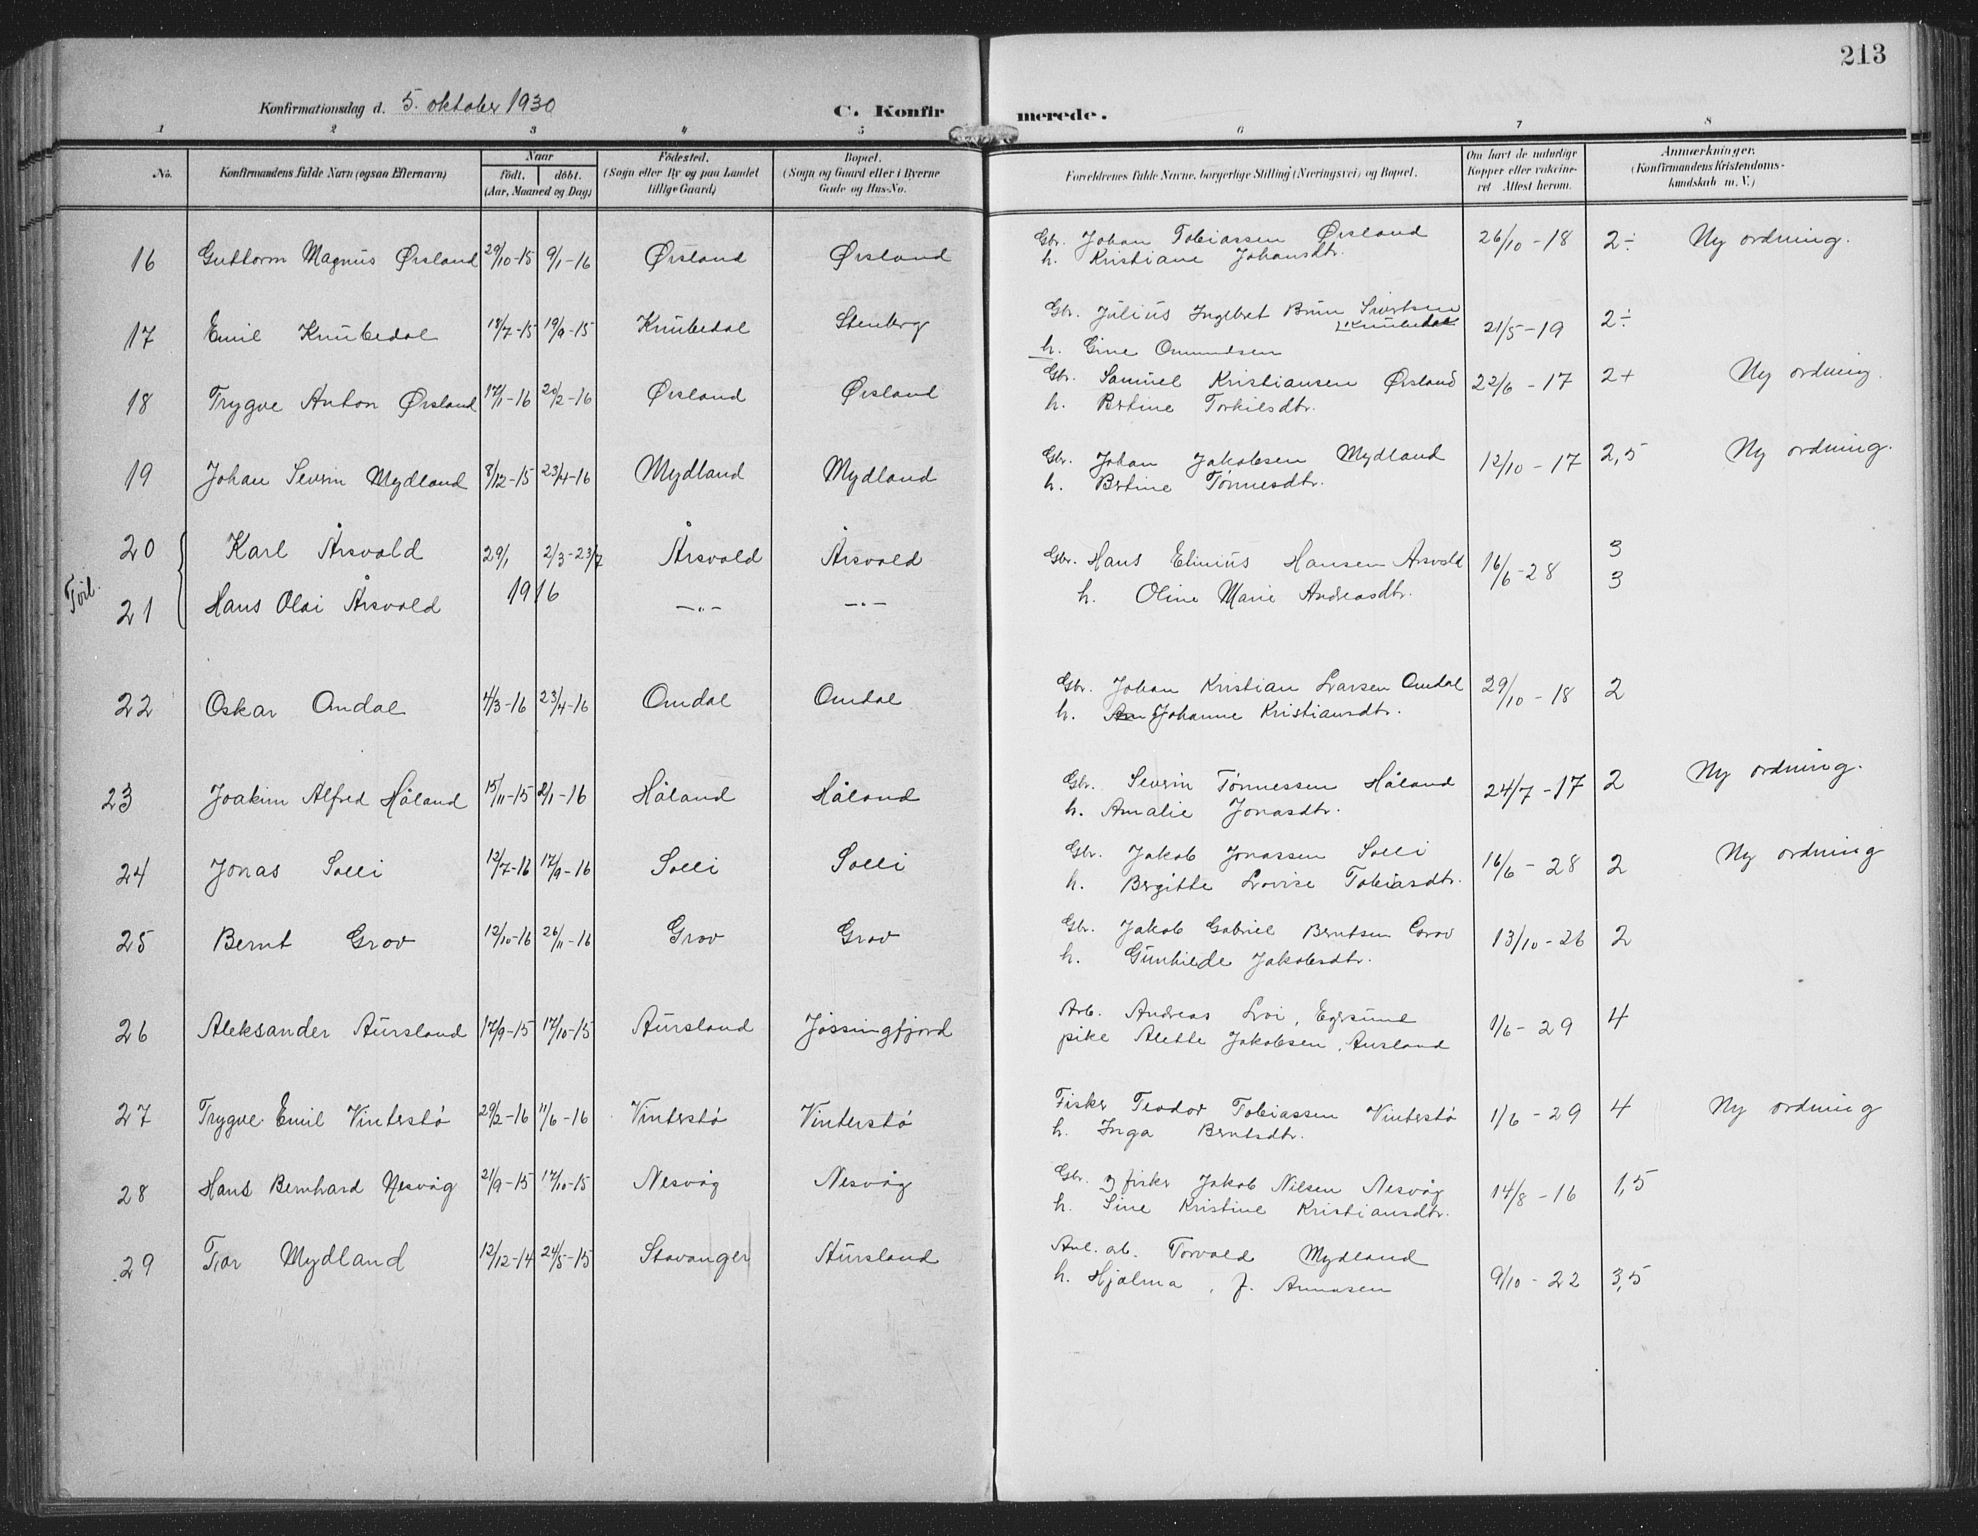 213
Konfirmationsdag d. 5. oktober 1930 C. Konfirmerede.
1 2 3 4 5 6 7 8
No. Konfirmandens fulde Navn (ogsaa Efternavn) Naar født. døbt. (Aar, Maaned og Dag) Fødested. (Sogn eller By og paa Landet tillige Gaard) Bopæl. (Sogn og Gaard eller i Byerne Gade og Hus-No. Forældrenes fulde Navne, borgerlige Stilling (Næringsvei) og Bopæl. Om havt de naturlige Kopper eller vakcineret Attest herom. Anmærkninger. (Konfirmandens Kristendomskundskab m. V.)
16 Guttorm Magnus Ørsland 29/10-15 9/1-16 Ørsland Ørsland Gbr. Johan Tobiassen Ørsland 26/10-18 2÷ Ny ordning.
h. Kristiane Johansdtr.
17 Emil Knubedal 18/7-15 19/9-15 Knubedal Stenberg Gbr. Julius Ingebret Brun Sivertsen 21/5-19 2÷
Knubedal
h. Gine Omundsen
18 Trygve Anton Ørsland 17/1-16 20/2-16 Ørsland Ørsland Gbr. Samuel Kristiansen Ørsland 22/6-17 2+ Ny ordning.
h. Bertine Torkilsdtr.
19 Johan Severin Mydland 8/12-15 23/4-16 Mydland Mydland Gbr. Johan Jakobsen Mydland 12/10-17 2,5 Ny ordning.
h. Bertine Tønnesdtr.
20 Karl Årsvold 29/1 2/3-23/7 Årsvold Årsvold Gbr. Hans Elinius Hansen Årsvold 16/6-28 3
Tvil. 21 Hans Olai Årsvold 1916 —"— —"— h. Oline Marie Andreasdtr. 3
22 Oskar Omdal 4/3-16 23/4-16 Omdal Omdal Gbr. Johan Kristian Larsen Omdal 29/10-18 2
h. Johanne Kristiansdtr.
23 Joakim Alfred Håland 15/11-15 2/1-16 Håland Håland Gbr. Severin Tønnessen Håland 24/7-17 2 Ny ordning.
h. Amalie Jonasdtr.
24 Jonas Solli 12/7-16 17/9-16 Solli Solli Gbr. Jakob Jonassen Solli 16/6-28 2 Ny ordning
h. Bergitte Lovise Tobiasdtr.
25 Bernt Grov 12/10-16 26/11-16 Grov Grov Gbr. Jakob Gabriel Berntsen Grov 13/10-26 2
h. Gunhilde Jakobsdtr.
26 Aleksander Aursland 17/9-15 17/10-15 Aursland Jøssingfjord Arb. Andreas Loi, Egersund 1/6-29 4
pike Alette Jakobsen, Aursland
27 Trygve Emil Vinterstø 29/2-16 11/6-16 Vinterstø Vinterstø Fisker Teodor Tobiassen Vinterstø 1/6-29 4 Ny ordning
h. Inga Berntsdtr.
28 Hans Bernhard Nesvåg 21/9-15 17/10-15 Nesvåg Nesvåg Gbr. og fisker Jakob Nilsen Nesvåg 14/8-16 1,5
h. Sine Kristine Kristiansdtr.
29 Tor Mydland 12/12-14 24/5-15 Stavanger Aursland Anl. arb. Torvald Mydland 9/10-22 3,5
h. Hjalma, f. Aanasen